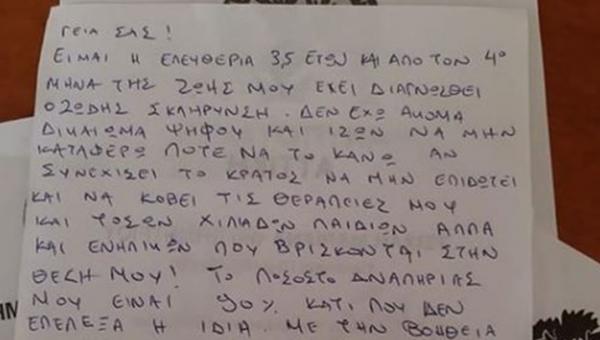 ΓΕΙΑ ΣΑΣ!
ΕΙΜΑΙ Η ΕΛΕΥΘΕΡΙΑ 3,5 ΕΤΩΝ ΚΑΙ ΑΠΟ ΤΟΝ 4ο
ΜΗΝΑ ΤΗΣ ΖΩΗΣ ΜΟΥ ΕΧΕΙ ΔΙΑΓΝΩΣΘΕΙ
ΟΖΩΔΗΣ ΣΚΛΗΡΥΝΣΗ. ΔΕΝ ΕΧΩ ΑΚΟΜΑ
ΔΙΚΑΙΩΜΑ ΨΗΦΟΥ ΚΑΙ ΙΣΩΝ ΝΑ ΜΗΝ
ΚΑΤΑΦΕΡΩ ΠΟΤΕ ΝΑ ΤΟ ΚΑΝΩ ΑΝ
ΣΥΝΕΧΙΣΕΙ ΤΟ ΚΡΑΤΟΣ ΝΑ ΜΗΝ ΕΠΙΔΟΤΕΙ
ΚΑΙ ΝΑ ΚΟΒΕΙ ΤΙΣ ΘΕΡΑΠΕΙΕΣ ΜΟΥ
ΚΑΙ ΤΟΣΩΝ ΧΙΛΙΑΔΩΝ ΠΑΙΔΙΩΝ ΑΛΛΑ
ΚΑΙ ΕΝΗΛΙΚΩΝ ΠΟΥ ΒΡΙΣΚΟΝΤΑΙ ΣΤΗΝ
ΘΕΣΗ ΜΟΥ! ΤΟ ΠΟΣΟΣΤΟ ΑΝΑΠΗΡΙΑΣ
ΜΟΥ ΕΙΝΑΙ 90% ΚΑΤΙ ΠΟΥ ΔΕΝ
ΕΠΕΛΕΞΑ Η ΙΔΙΑ. ΜΕ ΤΗΝ ΒΟΗΘΕΙΑ